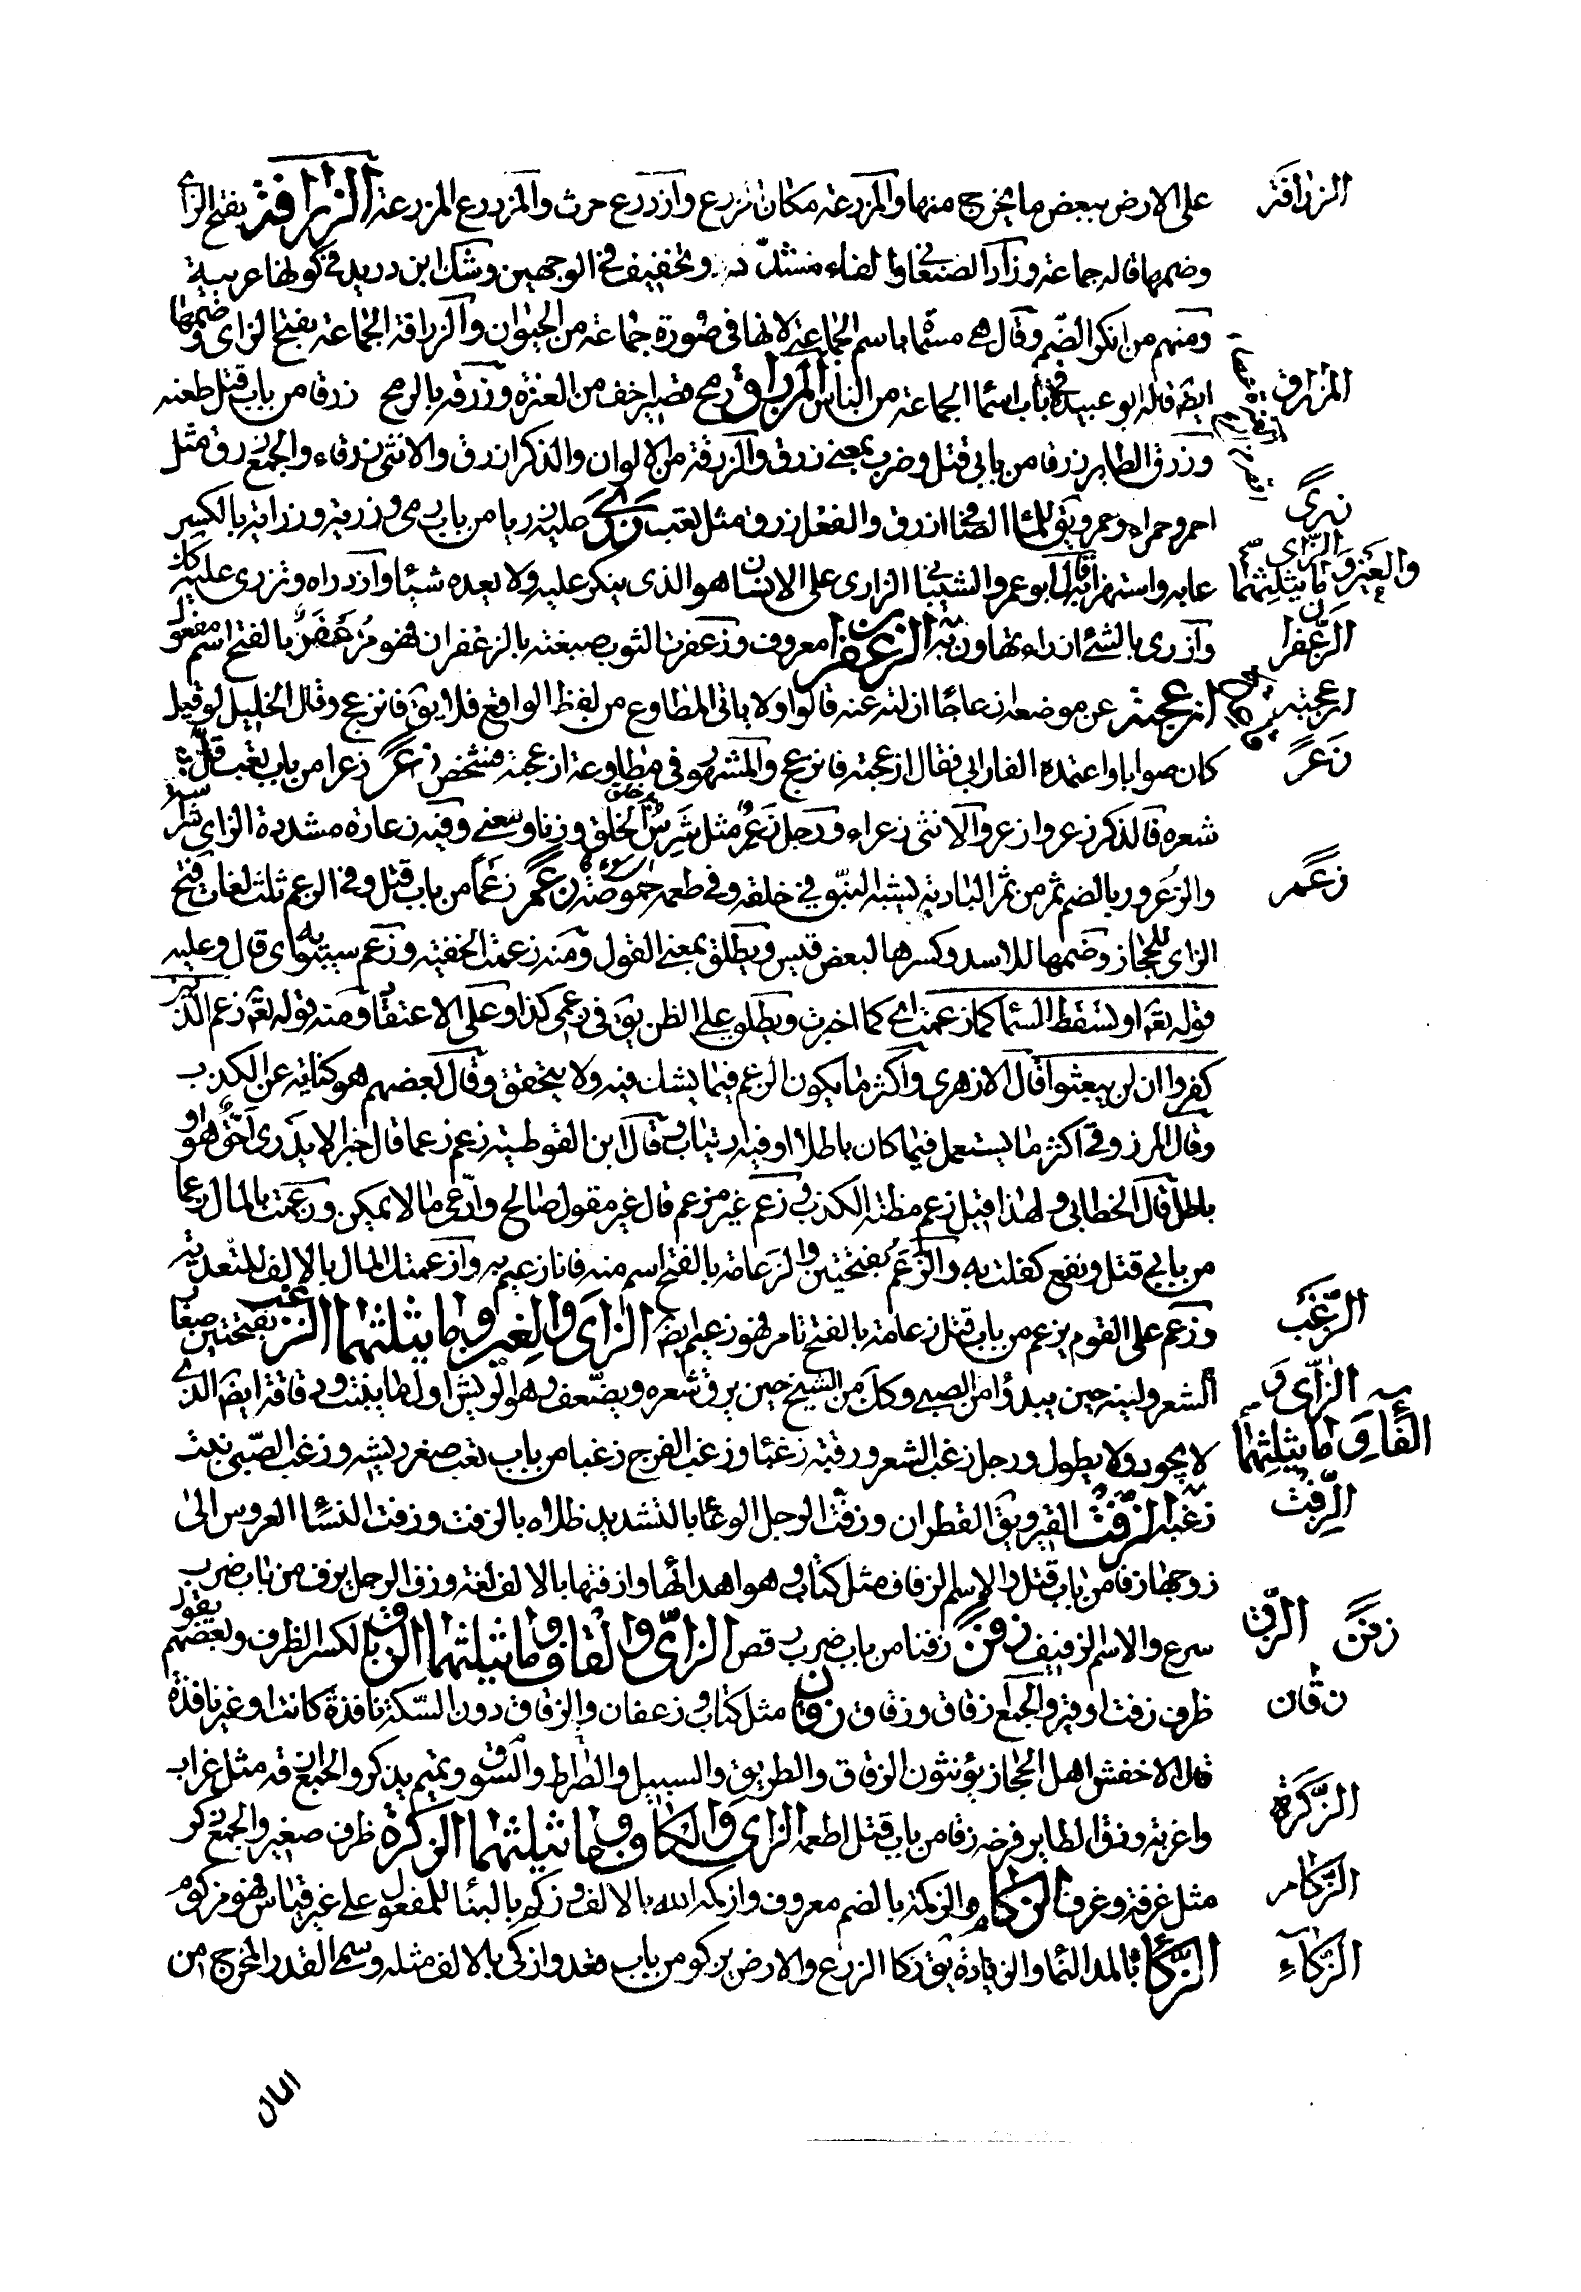 الزرافة
على الارض ببعض ما يخرج منها والمزرعة مكان الزرع وازدرع حرث والمزدرع المزرعة الزرافة بفتح الزاى
وضمها قاله جماعة وزاد الصنعانى والفاء مشددة وتخفيف فى الوجهين وشك ابن دريد فى كونها عربية
ومنهم من انكر الضم وقال هى مسماة باسم الجماعة لانها فى صورة جماعة من الحيوان والزرافة الجماعة بفتح الزاى وضمها
المزراق
ايضا قاله ابو عبيد فى باب اسماء الجماعة من الناس المزراق رمح قصير اخف من العنزة وزرقه بالرمح زرقا من باب قتل طعنه
وزرق الطاير زرقا من بابى قتل وضرب بمعنى ذرق والزرقة من الالوان والذكر ازرق والانثى زرقاء والجمع زرق مثل
زرى
احمر وحمراء وحمر ويق للماء الصافى ازرق والفعل زرق مثل تعب زرى عليه زريا من باب رمى وزرية وزراية بالكسر
والزاى والعين وما يثلثهما
عابه واستهزأ به قال ابو عمرو الشيبانى الزارى على الانسان هو الذى ينكر عليه ولا يعده شيئا وازدراه وتزرى عليه كك
الزعفران
وازرى بالشئ ازراء تهاون به الزعفران معروف وزعفرت الثوب صبغته بالزعفران فهو مزعفر بالفتح اسم مفعول
ازعجته
ازعجته عن موضعه ازعاجا ازلته عنه قالوا ولا ياتى المطاوع من لفظ الواقع فلا يق فانزعج وقال الخليل لو قيل
زعر
كان صوابا واعتمده الفارابى فقال ازعجته فانزعج والمشهور فى مطاوعة ازعجته فشخص زعر زعرا من باب تعب قل
شعره فالذكر زعر وازعر والانثى زعراء ورجل زعر مثل شرس الخلق وزنا ومعنى وفيه زعارة مشددة الزاى شراسة
زعم
والزعرور بالضم ثمر من ثمر البادية يشبه النبق فى خلقه وفى طعمه حموضة زعم زعما من باب قتل وفى الزعم ثلث لغات فتح
الزاى للحجاز وضمها للاسد وكسرها لبعض قيس ويطلق بمعنى القول ومنه زعمت الحنفية وزعم سيبويه اى قال وعليه
قوله تعالى او تسقط السماء كما زعمت اى كما اخبرت ويطلق على الظن يق فى زعمى كذا وعلى الاعتقاد ومنه قوله تعالى زعم الذين
كفروا ان لن يبعثوا قال الازهرى واكثر ما يكون الزعم فيما يشك فيه ولا يتحقق وقال بعضهم هو كناية عن الكذب
وقال المرزوقى اكثر ما يستعمل فيما كان باطلا او فيه ارتياب وقال ابن القوطية زعم زعما قال خبرا لا يدرى احق هو او
باطل قال الخطابى ولهذا قيل زعم مطية الكذب وزعم غير مزعم قال غير مقول صالح وادعى ما لا يمكن وزعمت بالمال زعما
من بابى قتل ونفع كفلت به والزعم بفتحتين والزعامة بالفتح اسم منه فانا زعيم به وازعمتك المال بالالف للتعدية
الزغب
وزعم على القوم يزعم من باب قتل زعامة بالفتح تامر فهو زعيم ايضا الزاى والغين وما يثلثهما الزغب بفتحتين صغار
الزاى و
الشعر ولينه حين يبدو من الصبى وكك من الشيخ حين يرق شعره ويضعف وهو الريش اول ما ينبت ودقاقه ايضا الذى
الفاء وما يثلثهما
لا يجود ولا يطول ورجل زغب الشعر ورقبة زغباء وزغب الفرخ زغبا من باب تعب صغر ريشه وزغب الصبى نبت
الزفت
زغبه الزفت القير ويق القطران وزفت الرجل الوعاء بالتشديد طلاه بالزفت وزفت النساء العروس الى
زوجها زفا من باب قتل والاسم الزفاف مثل كتاب وهو اهداؤها وازفتها بالالف لغة وزف الرجل يزف من باب ضرب
زفن الزق
سرع والاسم الزفيف زفن زفنا من باب ضرب رقص الزاى والقاف وما يثلثهما الزق بالكسر الظرف وبعضهم يقول
زقان
ظرف زفت او قير والجمع زقاق وزقاق زقان مثل كتاب و زعفان والزقاق دون السكة نافذة كانت او غير نافذة
قال الاخفش اهل الحجاز يؤنثون الزقاق والطريق والسبيل والصراط والسوق وتميم يذكر والجمع ازقة مثل غراب
الزكرة
واغربة وزق الطاير فرخه زقا من باب قتل اطعمه الزاى والكاف وما يثلثهما الزكرة ظرف صغير والجمع زكر
الزكام
مثل غرفة وغرف الزكام والزكمة بالضم معروف وازكمه الله بالالف وزكم بالبناء للمفعول على غير قياس فهو مزكوم
الزكاء
الزكاء بالمد النماء والزيادة يق زكا الزرع والارض يزكو من باب قعد وازكى بالالف مثله وسمى القدر المخرج من
المال